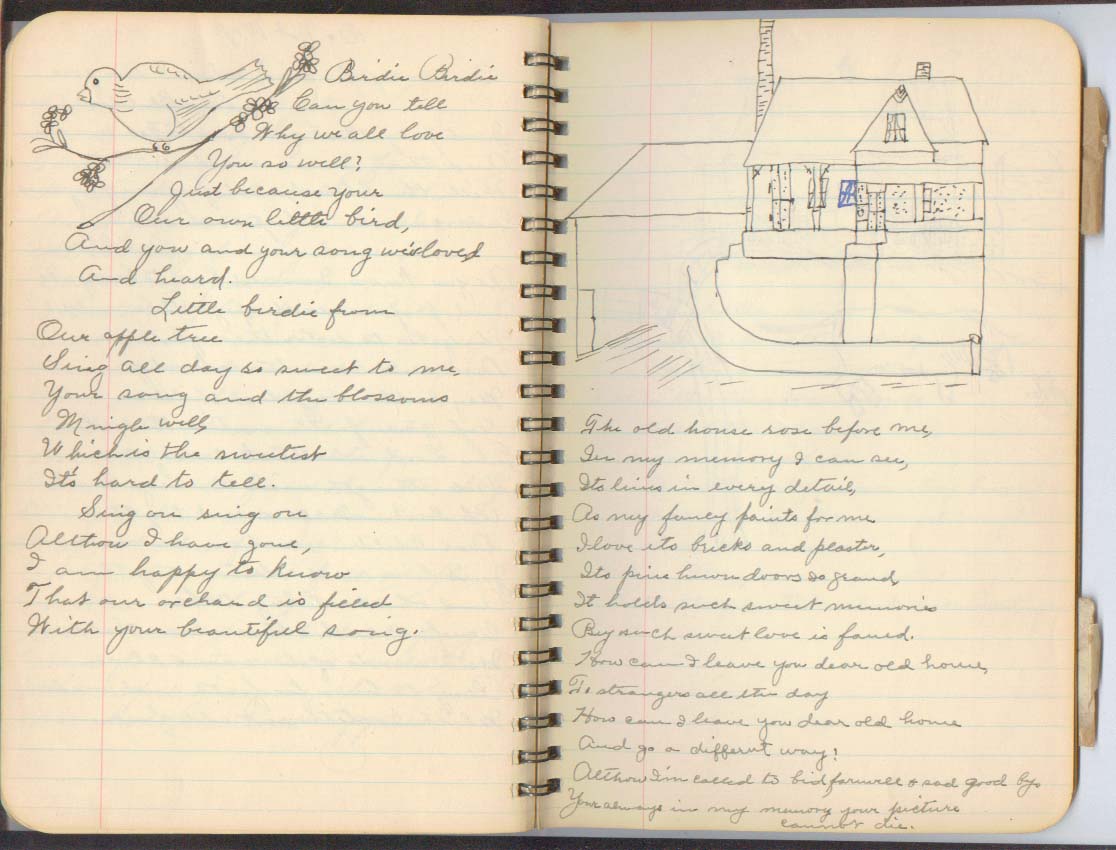 Birdie Birdie
Can you tell
Why we all love
You so well?
Just because your
Our own little bird,
And you and your song we loved
And heard.
Little birdie from
Our apple tree
Sing all day so sweet to me,
Your song and the blossoms
Mingle well,
Which is the sweetest
It's hard to tell.
Sing on sing on
Althow I have gone,
I am happy to know
That our orchard is filled
With your beautiful song.
The old house rose before me,
In my memory I can see,
Its lines in every detail,
As my fancy paints for me
I love its bricks and plaster,
Its pine hewn doors so grand,
It holds such sweet memories
By such sweet love is faned.
How can I leave you dear old home,
To strangers all the day
How can I leave you dear old home
And go a different way?
Althow I'm called to bid farewell & sad good by,
Your always in my memory your picture
cannot die.